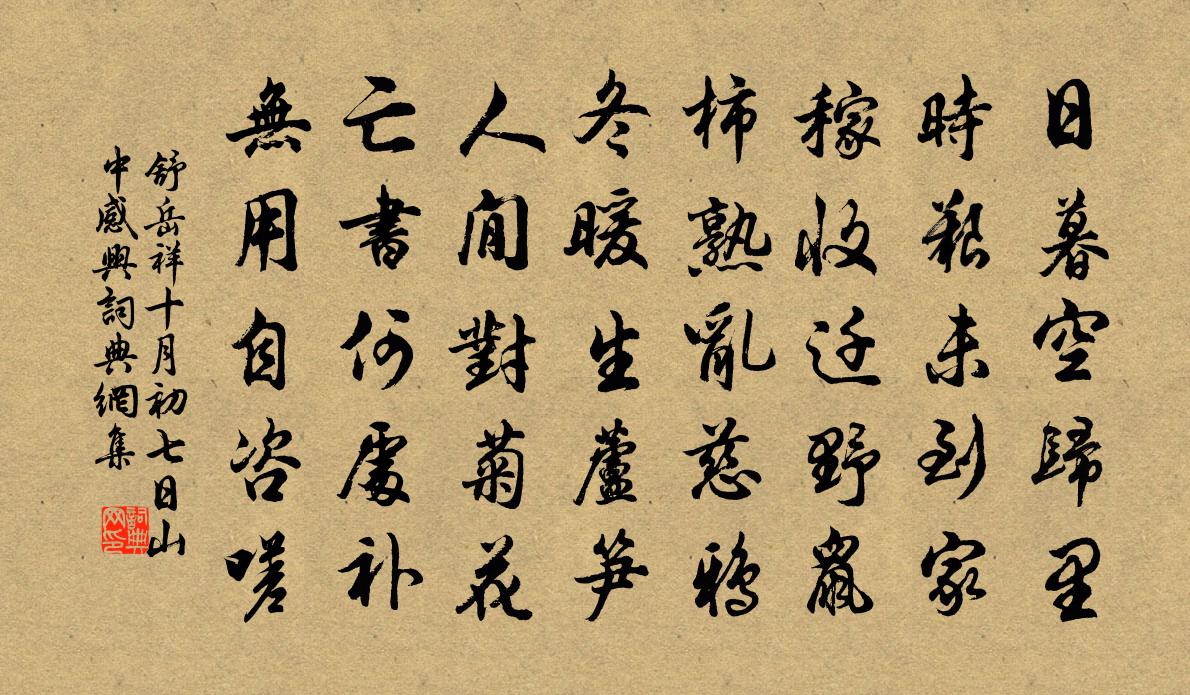 日暮空歸里
時艱未到家
稼收迁野鼠
柿熟亂慈鴉
冬暖生蘆笋
人閒對菊花
亡書何處补
無用自咨嗟
舒岳祥十月初七日山
中感興詞典網集
詞典
网印